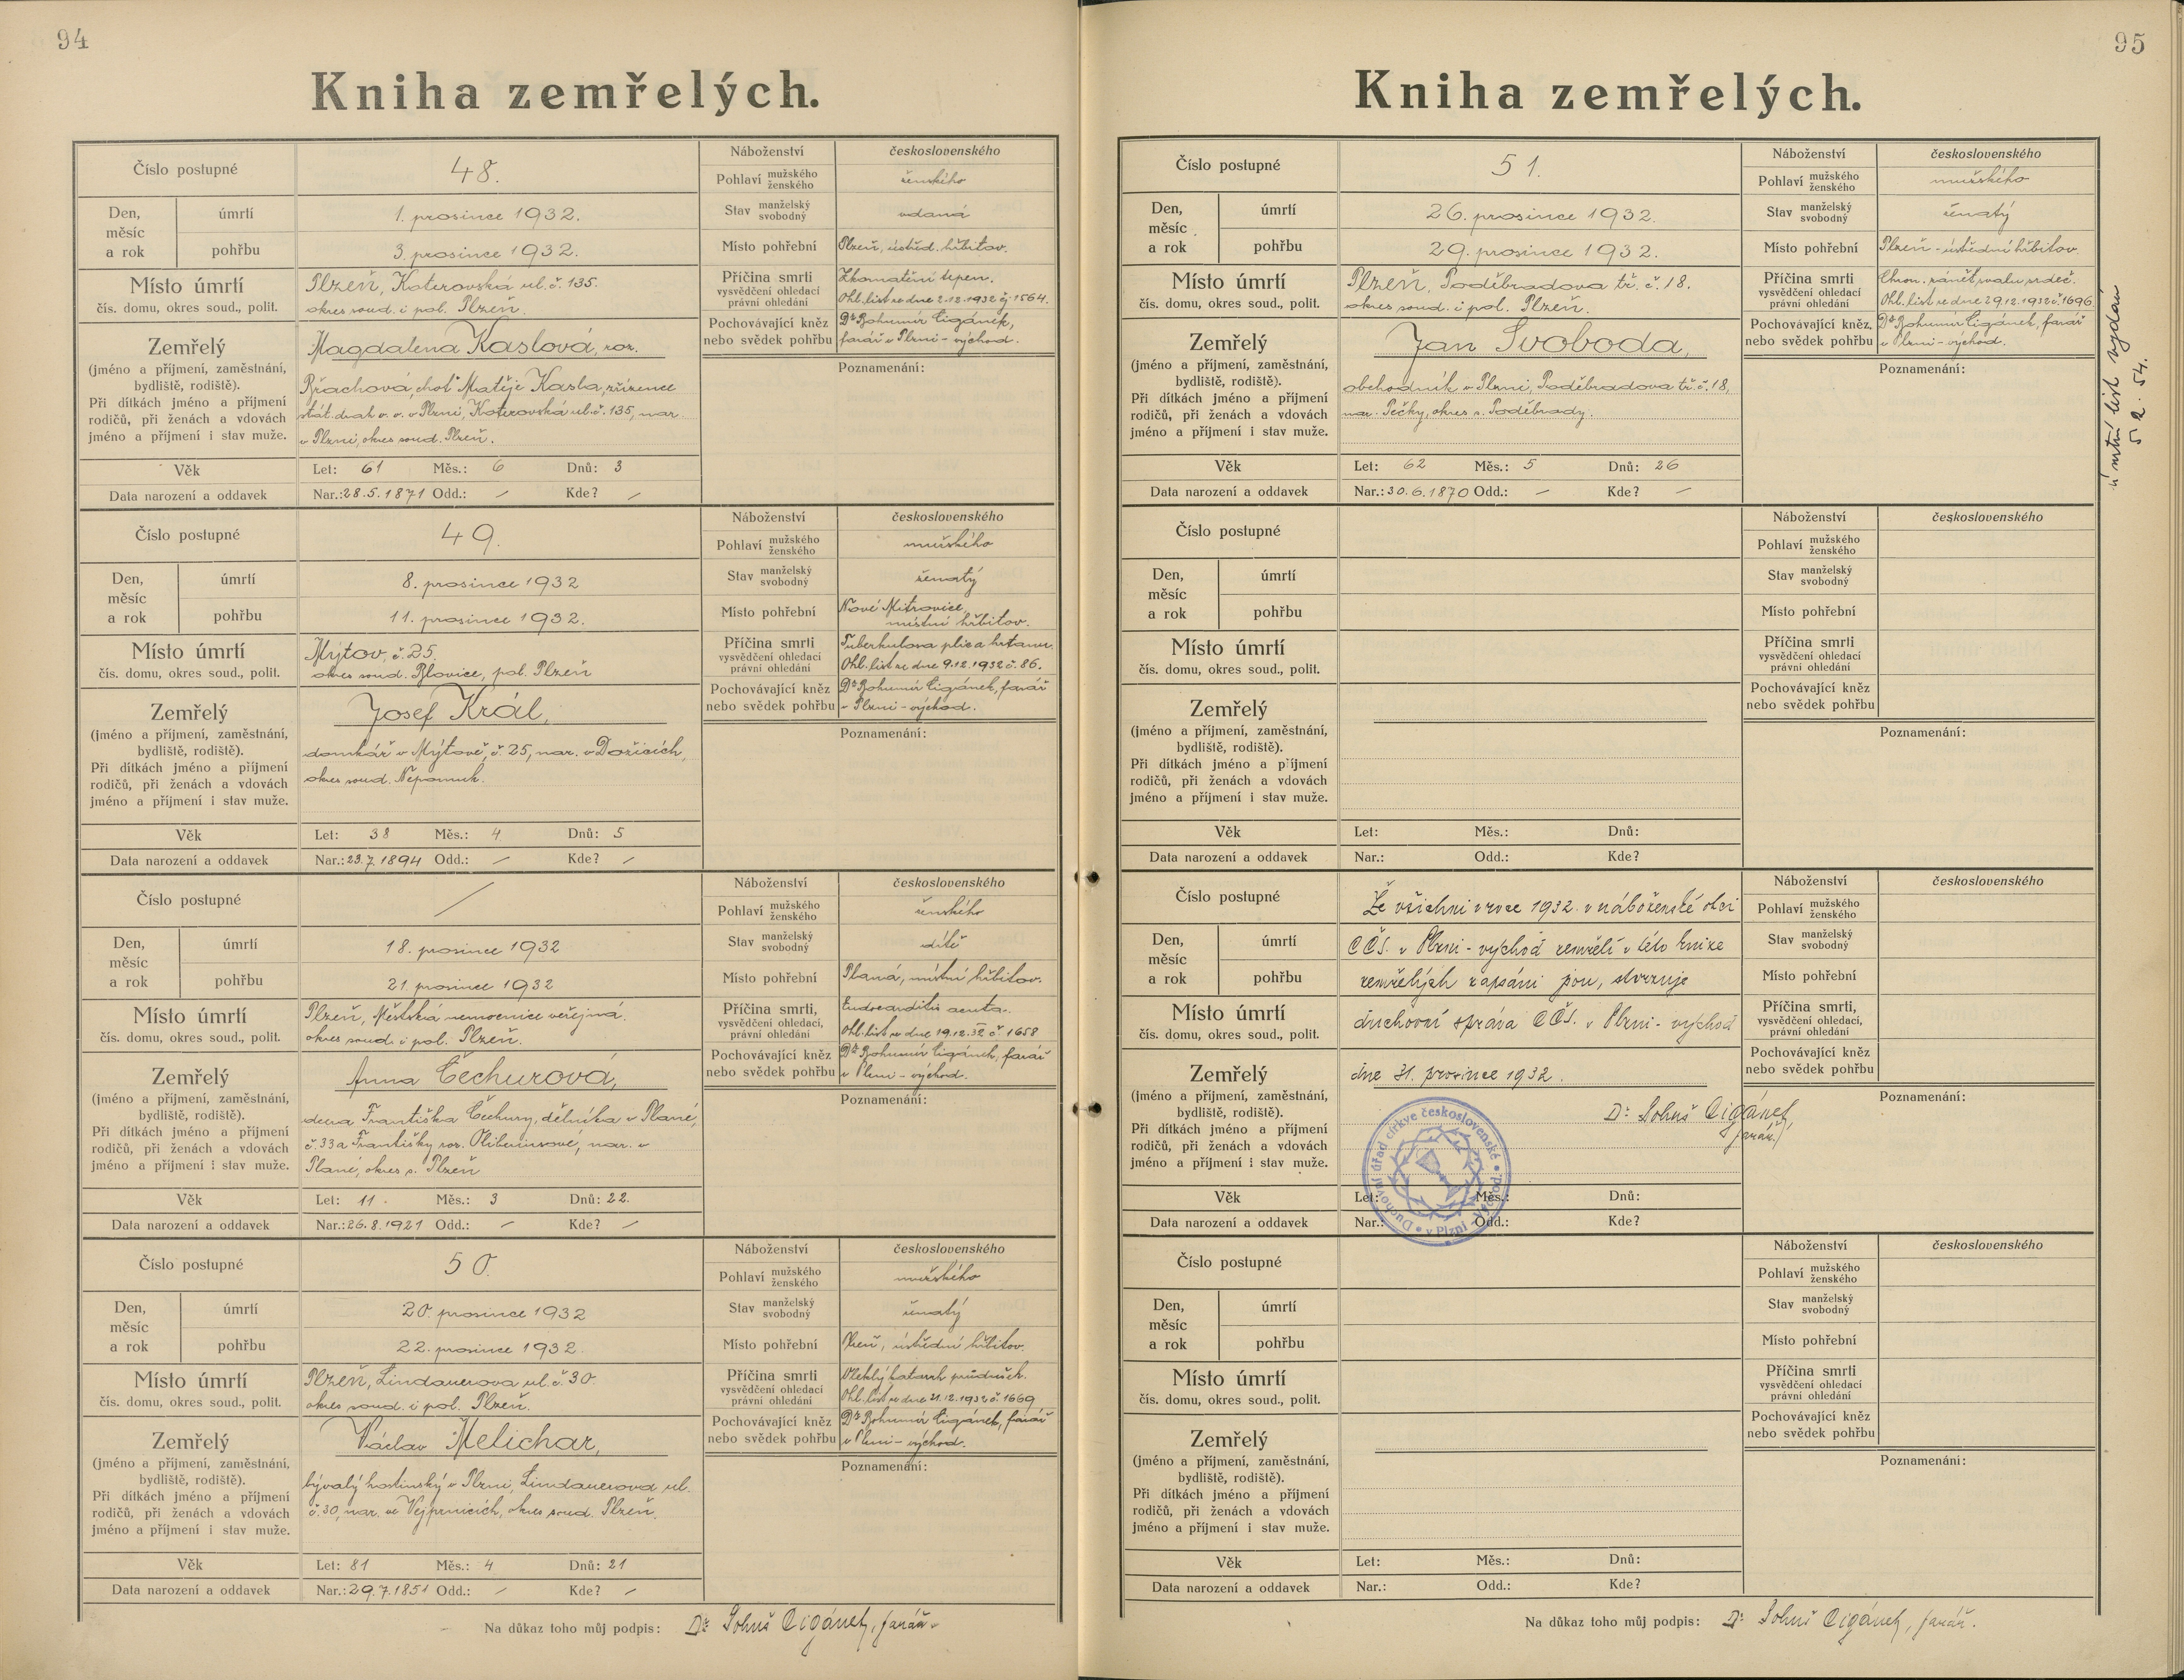 94
Kniha zemřelých.
Číslo postupné
48.
Den, měsíc a rok
úmrtí
1. prosince 1932.
pohřbu
3. prosince 1932.
Místo úmrtí
čís. domu, okres soud., polit.
Plzeň, Koterovská ul. č. 135.
okres soud. i pol. Plzeň.
Zemřelý
(jméno a příjmení, zaměstnání,
bydliště, rodiště).
Při dítkách jméno a příjmení
rodičů, při ženách a vdovách
jméno a příjmení i stav muže.
Magdalena Kaslová, roz.
choť Matěje Kasla, zřízence
stát. drah v. v. v Plzni, Koterovská ul. č. 135, nar.
v Plzni, okres soud. Plzeň.
Věk
Let: 61 Měs.: 6 Dnů: 3
Data narození a oddavek
Nar.: 28.5.1871 Odd.: / Kde? /
Náboženství
československého
Pohlaví mužského ženského
ženského
Stav manželský svobodný
vdaná
Místo pohřební
Plzeň, ústřed. hřbitov.
Příčina smrti
vysvědčení ohledací
právní ohledání
Zkornatění tepen.
Ohl. list ze dne 2.12.1932 čj. 1564.
Pochovávající kněz
nebo svědek pohřbu
Dr. Bohumír Cigánek,
farář v Plzni - východ.
Poznamenání:
Číslo postupné
49.
Den, měsíc a rok
úmrtí
8. prosince 1932
pohřbu
11. prosince 1932.
Místo úmrtí
čís. domu, okres soud., polit.
Mýtov, č. 25.
okres soud. Blovice, pol. Plzeň
Zemřelý
(jméno a příjmení, zaměstnání,
bydliště, rodiště).
Při dítkách jméno a příjmení
rodičů, při ženách a vdovách
jméno a příjmení i stav muže.
Josef Král,
domkář v Mýtově, č. 25, nar. v Dožicích,
okres soud. Nepomuk.
Věk
Let: 38 Měs.: 4 Dnů: 5
Data narození a oddavek
Nar.: 23.7.1894 Odd.: / Kde? /
Náboženství
československého
Pohlaví mužského ženského
mužského
Stav manželský svobodný
ženatý
Místo pohřební
Nové Mitrovice,
místní hřbitov.
Příčina smrti
vysvědčení ohledací
právní ohledání
Tuberkulosa plic a hrtanu.
Ohl. list ze dne 9.12.1932 č. 86.
Pochovávající kněz
nebo svědek pohřbu
Dr. Bohumír Cigánek, farář
v Plzni - východ.
Poznamenání:
Číslo postupné
/
Den, měsíc a rok
úmrtí
18. prosince 1932
pohřbu
21. prosince 1932
Místo úmrtí
čís. domu, okres soud., polit.
Plzeň, Městská nemocnice veřejná.
okres soud. i pol. Plzeň.
Zemřelý
(jméno a příjmení, zaměstnání,
bydliště, rodiště).
Při dítkách jméno a příjmení
rodičů, při ženách a vdovách
jméno a příjmení i stav muže.
Anna Čechurová,
dcera Františka Čechury, dělníka v Plané,
č. 33 a Františky roz. nar. v
Plané, okres s. Plzeň
Věk
Let: 11. Měs.: 3 Dnů: 22.
Data narození a oddavek
Nar.: 26.8.1921 Odd.: / Kde? /
Náboženství
československého
Pohlaví mužského ženského
ženského
Stav manželský svobodný
dítě
Místo pohřební
Planá, místní hřbitov.
Příčina smrti,
vysvědčení ohledací,
právní ohledání
Endocarditis acuta.
Ohl. list ze dne 19.12.32 č. 1658
Pochovávající kněz
nebo svědek pohřbu
Dr. Bohumír Cigánek, farář
v Plzni - východ.
Poznamenání:
Číslo postupné
50.
Den, měsíc a rok
úmrtí
20. prosince 1932
pohřbu
22. prosince 1932.
Místo úmrtí
čís. domu, okres soud., polit.
Plzeň, Lindauerova ul. č. 30.
okres soud. i pol. Plzeň.
Zemřelý
(jméno a příjmení, zaměstnání,
bydliště, rodiště).
Při dítkách jméno a příjmení
rodičů, při ženách a vdovách
jméno a příjmení i stav muže.
Václav Melichar,
bývalý hostinský v Plzni, Lindauerova ul.
č. 30, nar. ve Vejprnicích, okres soud. Plzeň.
Věk
Let: 81 Měs.: 4 Dnů: 21
Data narození a oddavek
Nar.: 29.7.1851 Odd.: / Kde? /
Náboženství
československého
Pohlaví mužského ženského
mužského
Stav manželský svobodný
ženatý
Místo pohřební
Plzeň, ústřední hřbitov.
Příčina smrti
vysvědčení ohledací
právní ohledání
Vleklý katarrh průdušek.
Ohl. list ze dne 21.12.1932 č. 1669
Pochovávající kněz
nebo svědek pohřbu
Dr. Bohumír Cigánek, farář
v Plzni - východ.
Poznamenání:
Na důkaz toho můj podpis: Dr. Bohuš Cigánek, farář.
95
Kniha zemřelých.
Číslo postupné
51.
Den, měsíc a rok
úmrtí
26. prosince 1932.
pohřbu
29. prosince 1932.
Místo úmrtí
čís. domu, okres soud., polit.
Plzeň, Poděbradova tř. č. 18.
okres soud. i pol. Plzeň.
Zemřelý
(jméno a příjmení, zaměstnání,
bydliště, rodiště).
Při dítkách jméno a příjmení
rodičů, při ženách a vdovách
jméno a příjmení i stav muže.
Jan Svoboda,
obchodník v Plzni, Poděbradova tř. č. 18,
nar. Pečky, okres s. Poděbrady.
Věk
Let: 62 Měs.: 5 Dnů: 26
Data narození a oddavek
Nar.: 30.6.1870 Odd.: / Kde? /
Náboženství
československého
Pohlaví mužského ženského
mužského
Stav manželský svobodný
ženatý
Místo pohřební
Plzeň - ústřední hřbitov.
Příčina smrti
vysvědčení ohledací
právní ohledání
Chron. zánět svalu srdeč.
Ohl. list ze dne 29.12.1932 č. 1696.
Pochovávající kněz
nebo svědek pohřbu
Dr. Bohumír Cigánek, farář
v Plzni - východ.
Poznamenání:
úmrtní list vydán
5. 2. 54.
Číslo postupné
Den, měsíc a rok
úmrtí
pohřbu
Místo úmrtí
čís. domu, okres soud., polit.
Zemřelý
(jméno a příjmení, zaměstnání,
bydliště, rodiště).
Při dítkách jméno a příjmení
rodičů, při ženách a vdovách
jméno a příjmení i stav muže.
Věk
Let: Měs.: Dnů:
Data narození a oddavek
Nar.: Odd.: Kde?
Náboženství
československého
Pohlaví mužského ženského
Stav manželský svobodný
Místo pohřební
Příčina smrti
vysvědčení ohledací
právní ohledání
Pochovávající kněz
nebo svědek pohřbu
Poznamenání:
Číslo postupné
Den, měsíc a rok
úmrtí
pohřbu
Místo úmrtí
čís. domu, okres soud., polit.
Zemřelý
(jméno a příjmení, zaměstnání,
bydliště, rodiště).
Při dítkách jméno a příjmení
rodičů, při ženách a vdovách
jméno a příjmení i stav muže.
Že všichni v roce 1932 v náboženské obci
CČS. v Plzni - východ zemřelí v této knize
zemřelých zapsáni jsou, stvrzuje
duchovní správa CČS. v Plzni - východ
dne 31. prosince 1932.
Dr. Bohuš Cigánek
farář
Duchovní úřad církve československé v Plzni - Východ.
Věk
Let: Měs.: Dnů:
Data narození a oddavek
Nar.: Odd.: Kde?
Náboženství
československého
Pohlaví mužského ženského
Stav manželský svobodný
Místo pohřební
Příčina smrti,
vysvědčení ohledací,
právní ohledání
Pochovávající kněz
nebo svědek pohřbu
Poznamenání:
Číslo postupné
Den, měsíc a rok
úmrtí
pohřbu
Místo úmrtí
čís. domu, okres soud., polit.
Zemřelý
(jméno a příjmení, zaměstnání,
bydliště, rodiště).
Při dítkách jméno a příjmení
rodičů, při ženách a vdovách
jméno a příjmení i stav muže.
Věk
Let: Měs.: Dnů:
Data narození a oddavek
Nar.: Odd.: Kde?
Náboženství
československého
Pohlaví mužského ženského
Stav manželský svobodný
Místo pohřební
Příčina smrti
vysvědčení ohledací
právní ohledání
Pochovávající kněz
nebo svědek pohřbu
Poznamenání:
Na důkaz toho můj podpis: Dr. Bohuš Cigánek, farář.